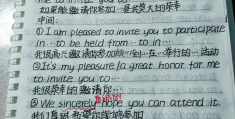 如果能邀请你参加…是我莫大的荣幸
中间.
①I am pleased to invite you to participate
in…to be held from…to in…
我很高兴邀请你参加从…到…在…举行的…活动
②It's my pleasure/a great honor for me
to invite you to…
我很荣幸的邀请你…
③We sincerely hope you can attend it.
我们真诚希望你能够参加